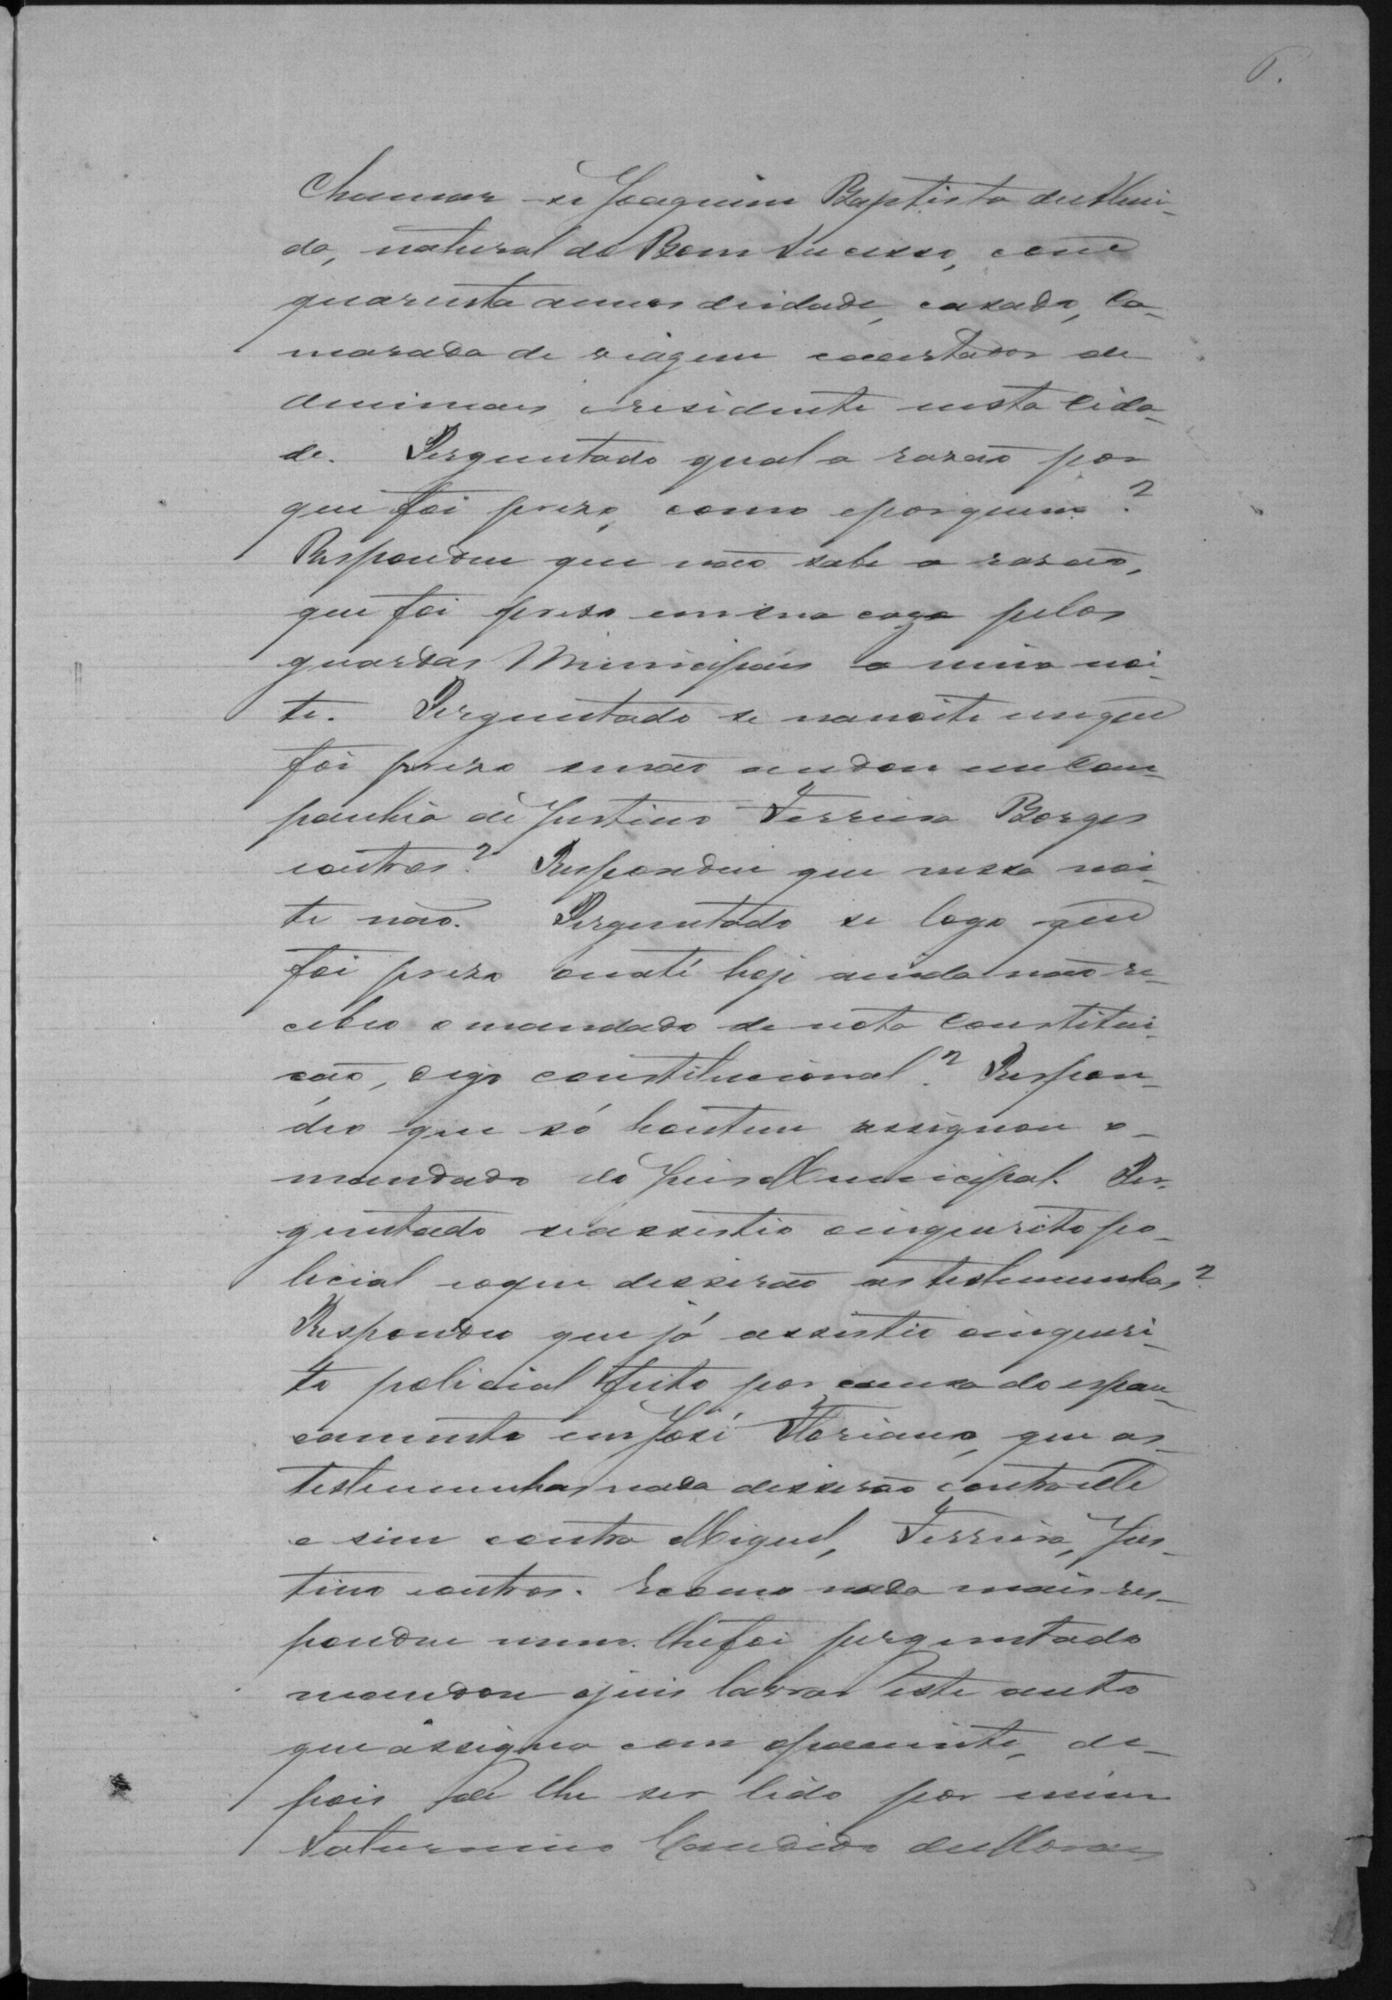 6.
Chamar-se Joaquim Baptista de Almei-
da, natural do Bom Sucesso, com
quarenta annos de idade, casado, ca-
marada de viagem concertador de
animaes e residente nesta cida-
de. Perguntado qual a razão por
que foi prezo, como e por quem?
Respondeu que não sabe a razão,
que foi preso em sua caza pelos
guardas Municipais a meia noi-
te. Perguntado se na noite em que
foi prezo se não andou em com-
panhia de Justino Ferreira Borges
e outros? Respondeu que nessa noi-
te não. Perguntado se logo que
foi prezo ou até hoje ainda não re-
cebeo o mandado de nota constitui-
ção, digo constitucional? Respon-
deo que só hontem assignou o
mandado do Juis Municipal. Per-
guntado se assistio o inquerito po-
licial e o que disserão as testemunhas?
Respondeo que já assistio o inqueri-
to policial feito por causa do espan-
camento em José Floriano, que as
testemunhas nada disserão contra elle
e sim contra Miguel, Ferreira, Jus-
tino e outros. E como nada mais res-
pondeu nem lhe foi perguntado
mandou o juis lavrar este auto
que assigna com o paciente, de-
pois de lhe ser lido por mim
Saturnino Candido de Moraes